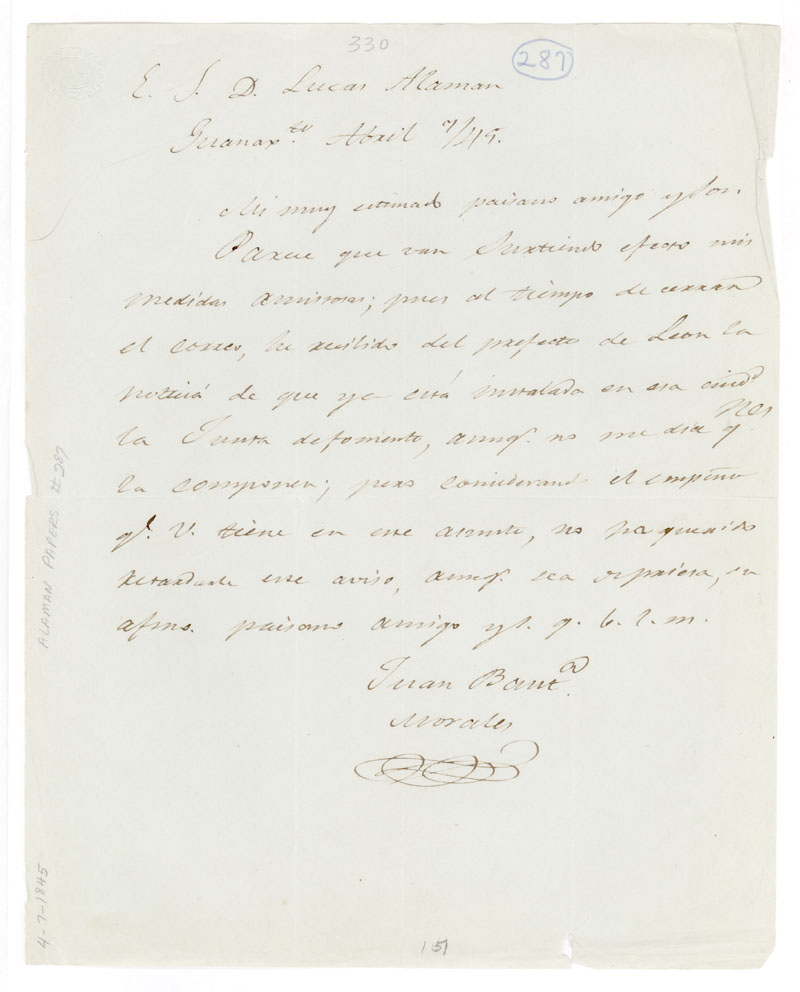 330
287
E. S. D. Lucas Alaman
Guanax.to Abril 7/45.
Mi muy estimado paisano amigo y Sor.
Parece que van surtiendo efecto mis
medidas amistosas; pues al tiempo de cerrar
el correo, he recibido del prefecto de Leon la
noticia de que ya está instalada en esa ciud.d
la Junta de fomento, aunq.e no me dice q.nes
la componen; pero considerando el empeño
q.e V. tiene en este asunto, no ha querido
retardarle este aviso, aunq.e sea de priesa, su
afmo. paisano amigo y s. q. b. s. m.
Juan Baut.a
Morales
ALAMAN PAPERS # 287
4-7-1845
151